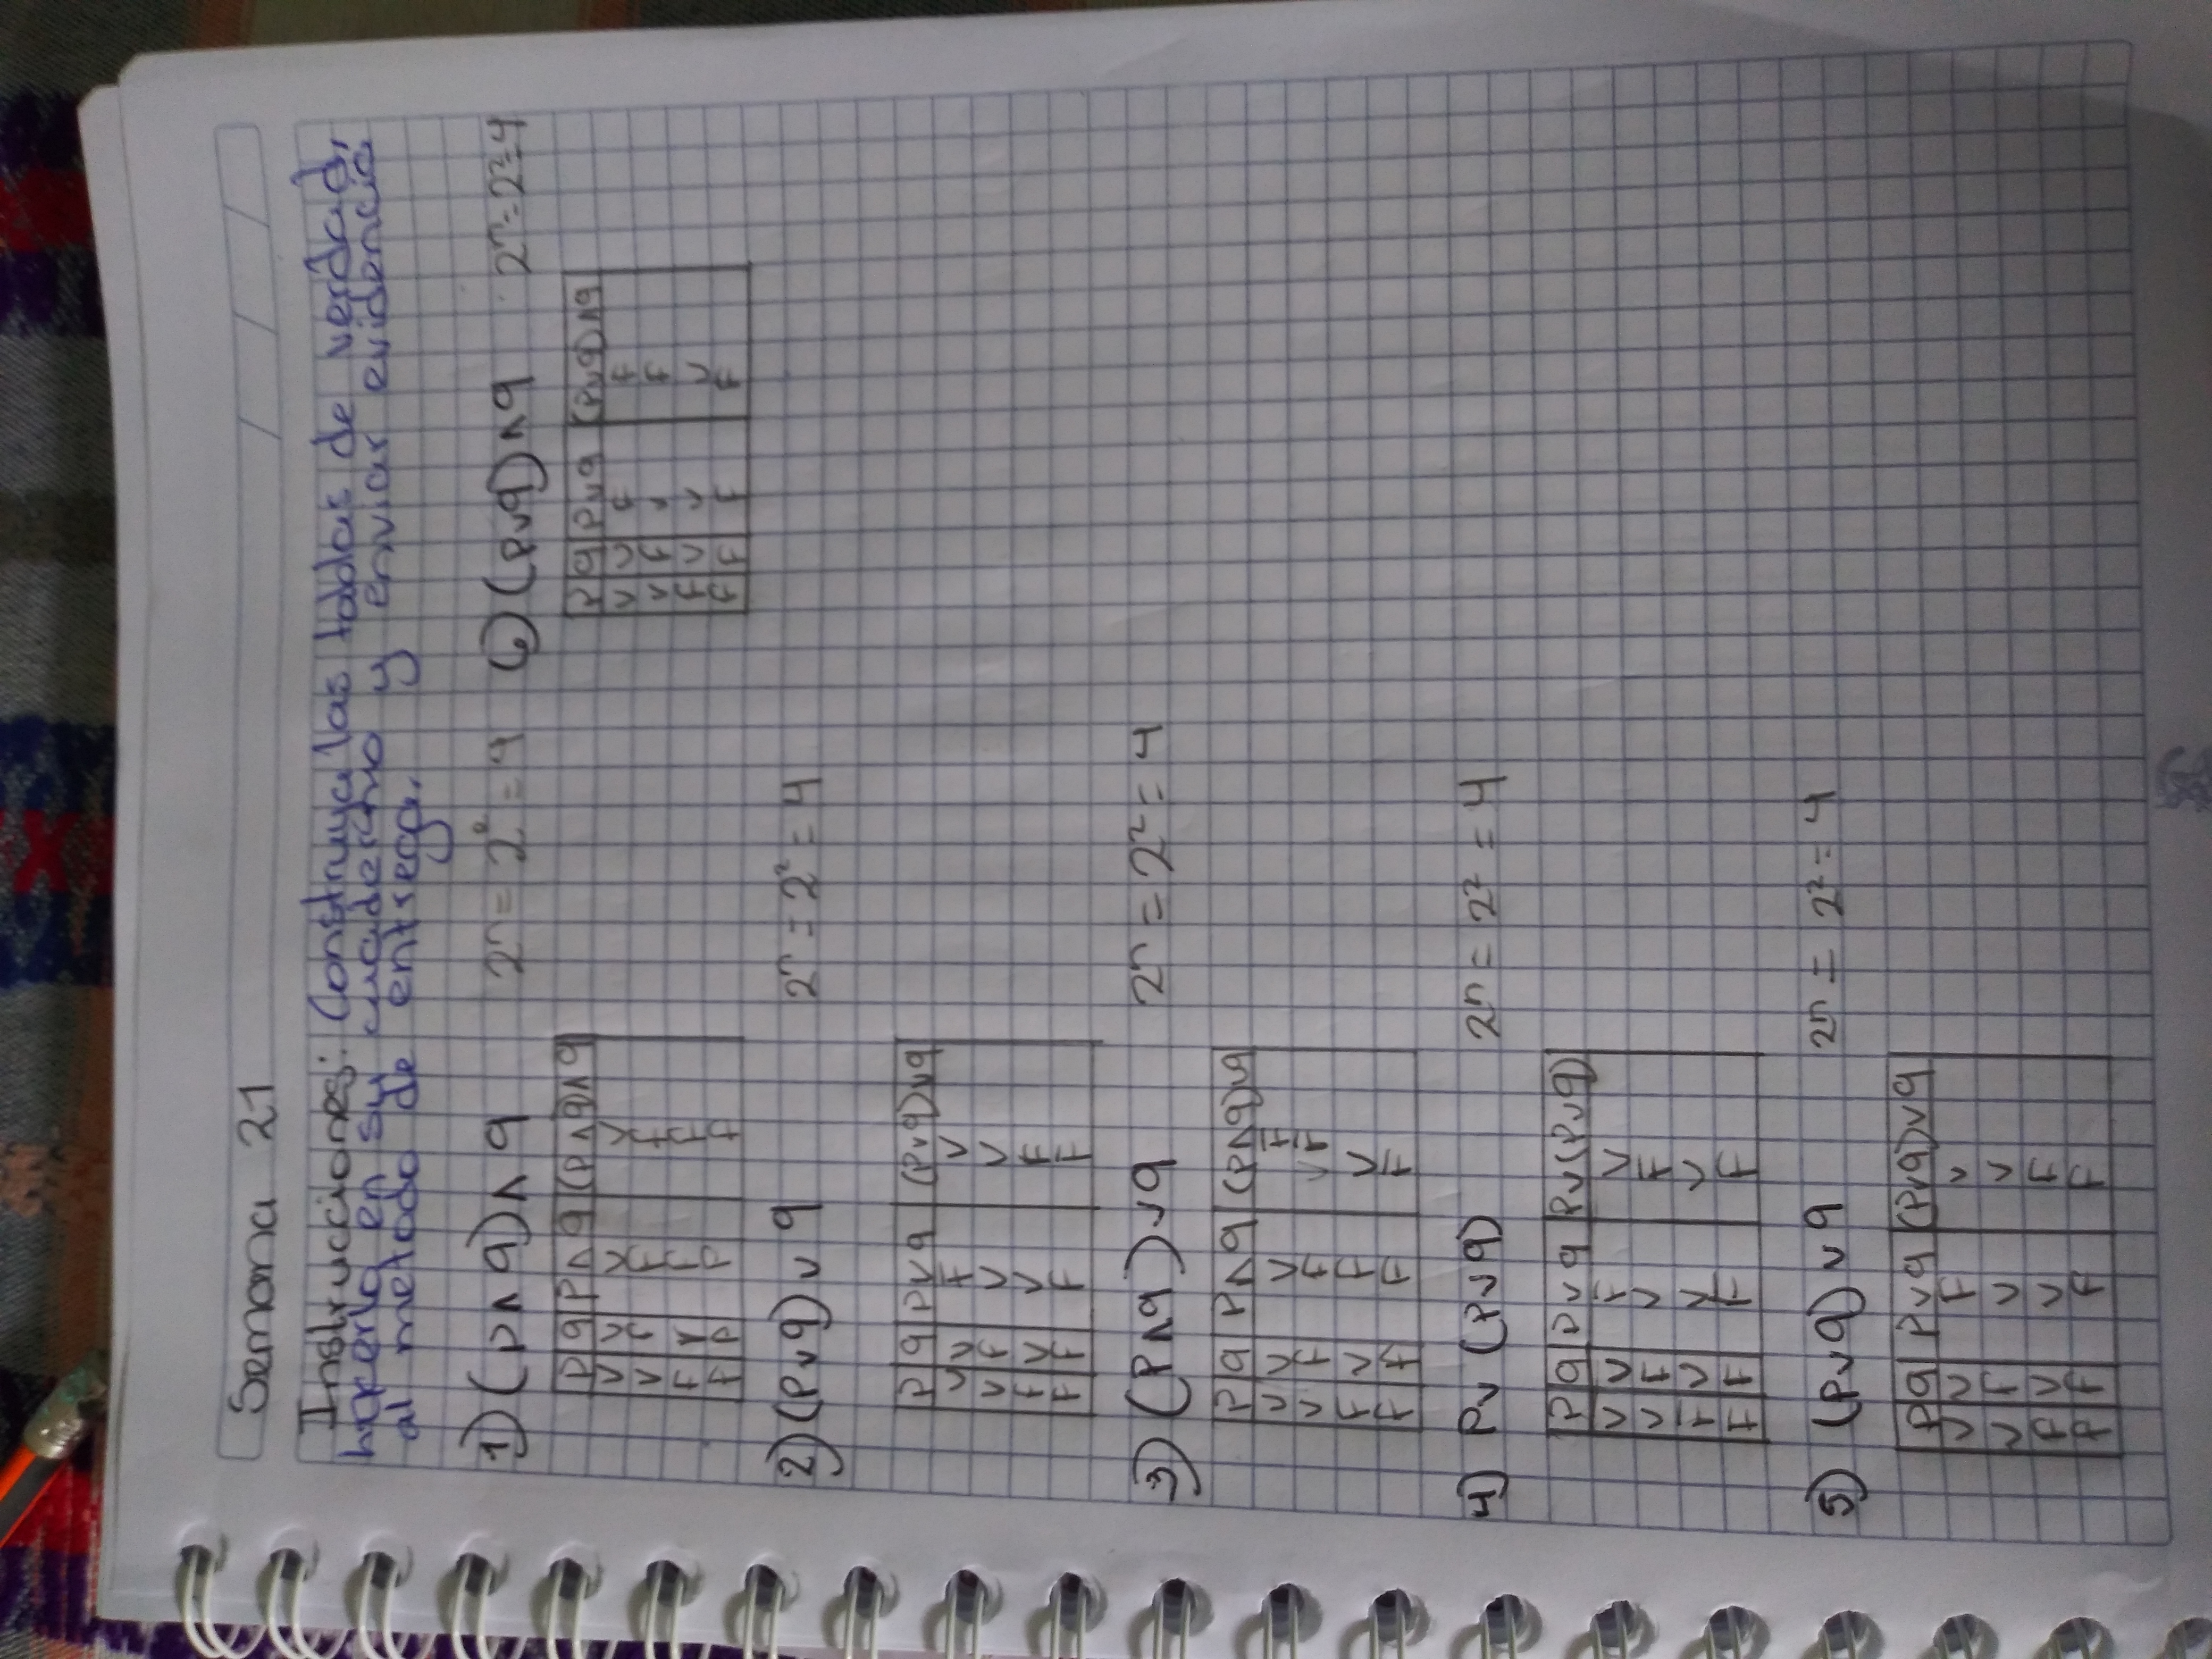 Semana 21
Instrucciones: Construya las tablas de verdad,
haperla en su cuadernno y enviar evidencia
al metodo de entrega.
1) (p ∧ q) ∧ q 2n = 2² = 4
p q p ∧ q (p ∧ q) ∧ q
V V V V
V F F F
F V F F
F F F F
2) (p v q) v q 2n = 2² = 4
p q p v q (p v q) v q
V V F V
V F V V
F V V F
F F F F
3) (p ∧ q) v q 2n = 2² = 4
p q p ∧ q (p ∧ q) v q
V V V F
V F F F
F V F V
F F F F
4) p v (p v q) 2n = 2² = 4
p q p v q p v (p v q)
V V F V
V F V F
F V V V
F F F F
5) (p v q) v q 2n = 2² = 4
p q p v q (p v q) v q
V V F V
V F V V
F V V F
F F F F
6) (p v q) ∧ q 2n = 2² = 4
p q p v q (p v q) ∧ q
V V F F
V F V F
F V V V
F F F F